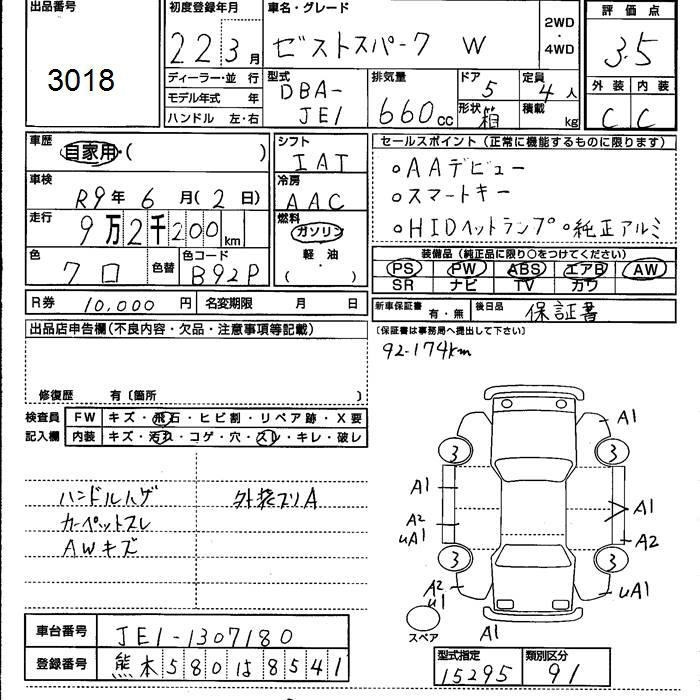 出品番号
3018
初度登録年月
22 3月
車名・グレード
ゼストスパーク W
2WD
・
4WD
評価点
3.5
外装 内装
C C
ディーラー・並 行
モデル年式 年
ハンドル 左・右
型式
DBA-
JE1
排気量
660cc
ドア
5
形状
箱
定員
4人
積載
kg
車歴
自家用・( )
車検
R9年 6月(2日)
走行
9万2千200km
色
クロ
色替
色コード
B92P
シフト
IAT
冷房
AAC
燃料
ガソリン
軽・油
( )
セールスポイント(正常に機能するものに限ります)
○AAデビュー
○スマートキー
○HIDヘットランプ ○純正アルミ
装備品(純正品に限り○をつけてください)
PS PW ABS エアB AW
SR ナビ TV カワ
R券 10,000円 名変期限 月 日
新車保証書 有・無 後日品 保証書
(保証書は事務局へ提出して下さい)
出品店申告欄(不良内容・欠品・注意事項等記載)
92-174km
修復歴 有〔箇所 〕
検査員
記入欄
FW キズ・飛石・ヒビ割・リペア跡・X要
内装 キズ・汚れ・コゲ・穴・スレ・キレ・破レ
ハンドルハゲ
カーペットスレ
AWキズ
外装スリA
A1
3 3
A1
A1
A2
uA1
A2
3 3
A2
u1
uA1
スペア
A1
車台番号 JE1-1307180
登録番号 熊本580は8541
型式指定 15295
類別区分 91